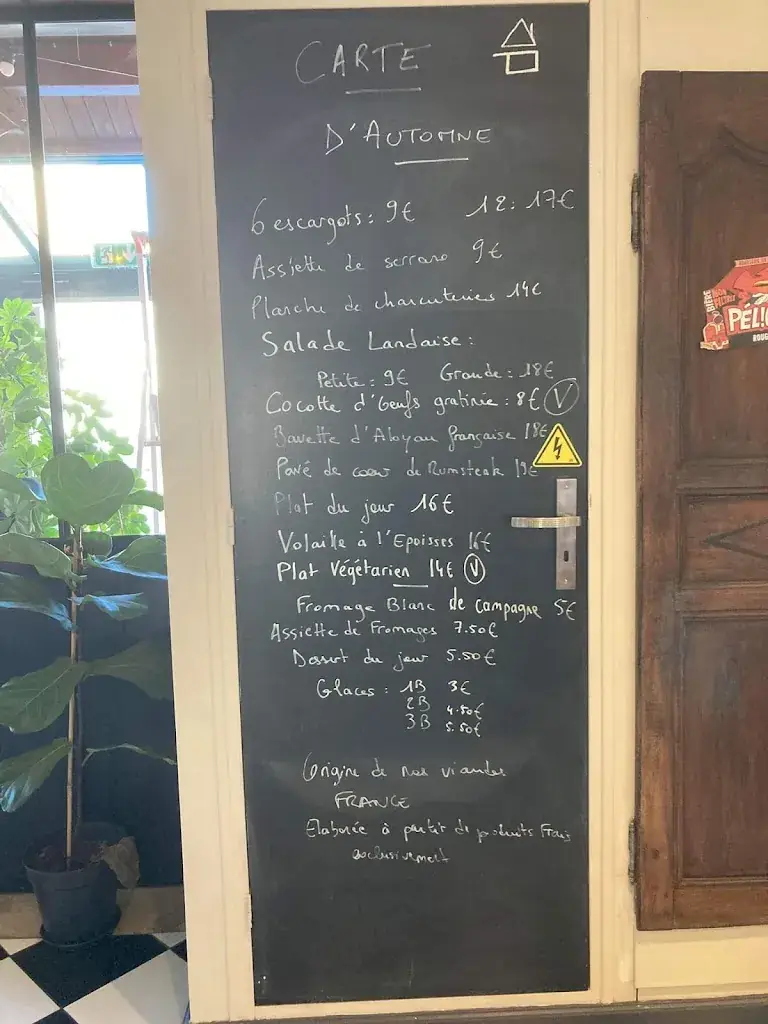 CARTE
D'AUTOMNE
6 escargots : 9€ 12 : 17€
Assiette de serrano 9€
Planche de charcuteries 14€
Salade Landaise :
Petite : 9€ Grande : 18€
Cocotte d'œufs gratinée : 8€ V
Bavette d'Aloyau française 18€
Pavé de cœur de Rumsteak 19€
Plat du jour 16€
Volaille à l'Epoisses 16€
Plat Végétarien 14€ V
Fromage Blanc de campagne 5€
Assiette de Fromages 7.50€
Dessert du jour 5.50€
Glaces : 1B 3€
2B 4.50€
3B 5.50€
Origine de nos viandes
FRANCE
Elaborée à partir de produits Frais
exclusivement
PÉLI
ROUG